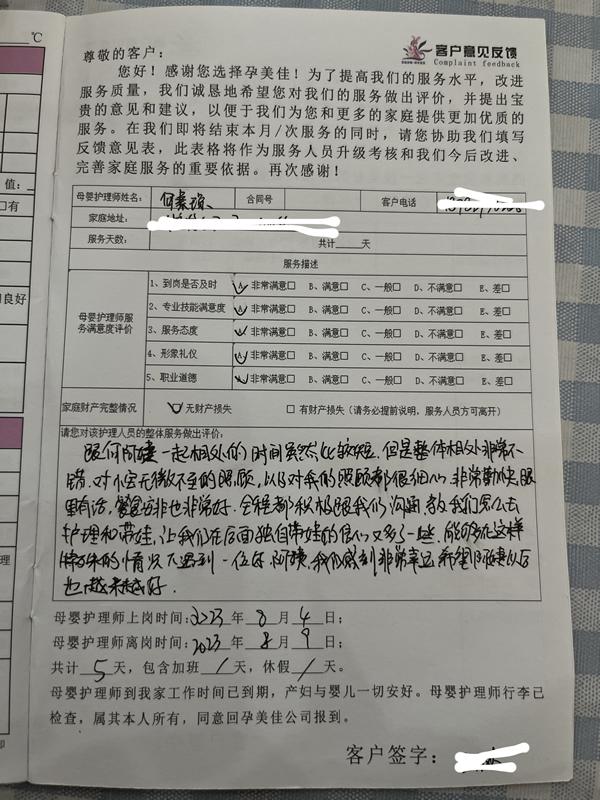 ℃
客户意见反馈
Complaint feedback
尊敬的客户：
您好！感谢您选择孕美佳！为了提高我们的服务水平，改进
服务质量，我们诚恳地希望您对我们的服务做出评价，并提出宝
贵的意见和建议，以便于我们为您和更多的家庭提供更加优质的
服务。在我们即将结束本月/次服务的同时，请您协助我们填写
反馈意见表，此表格将作为服务人员升级考核和我们今后改进、
完善家庭服务的重要依据。再次感谢！
母婴护理师姓名： 何 合同号 客户电话
家庭地址：
服务天数： 共计____天
服务描述
母婴护理师服
务满意度评价
1、到岗是否及时 A 非常满意□ B、满意□ C、一般□ D、不满意□ E、差□
2、专业技能满意度 A 非常满意□ B、满意□ C、一般□ D、不满意□ E、差□
3、服务态度 A 非常满意□ B、满意□ C、一般□ D、不满意□ E、差□
4、形象礼仪 A 非常满意□ B、满意□ C、一般□ D、不满意□ E、差□
5、职业道德 非常满意□ B、满意□ C、一般□ D、不满意□ E、差□
家庭财产完整情况 无财产损失 □有财产损失（请务必提前说明，服务人员方可离开）
请您对该护理人员的整体服务做出评价：
跟何阿姨一起相处的时间虽然比较短，但是整体相处非常不
错，对小宝无微不至的照顾，以及对我的照顾都很细心，非常勤快，眼
里有活，餐食安排也非常好，全程都积极跟我们沟通，教我们怎么去
护理和带娃，让我们在后面独自带娃的信心又多了一些，能够在这样
特殊的情况下遇到一位好阿姨，我们感到非常幸运，希望阿姨以后
也越来越好。
母婴护理师上岗时间：2023年 8 月 4 日；
母婴护理师离岗时间：2023年 8 月 9 日；
共计 5 天，包含加班 / 天，休假 / 天。
母婴护理师到我家工作时间已到期，产妇与婴儿一切安好。母婴护理师行李已
检查，属其本人所有，同意回孕美佳公司报到。
客户签字：